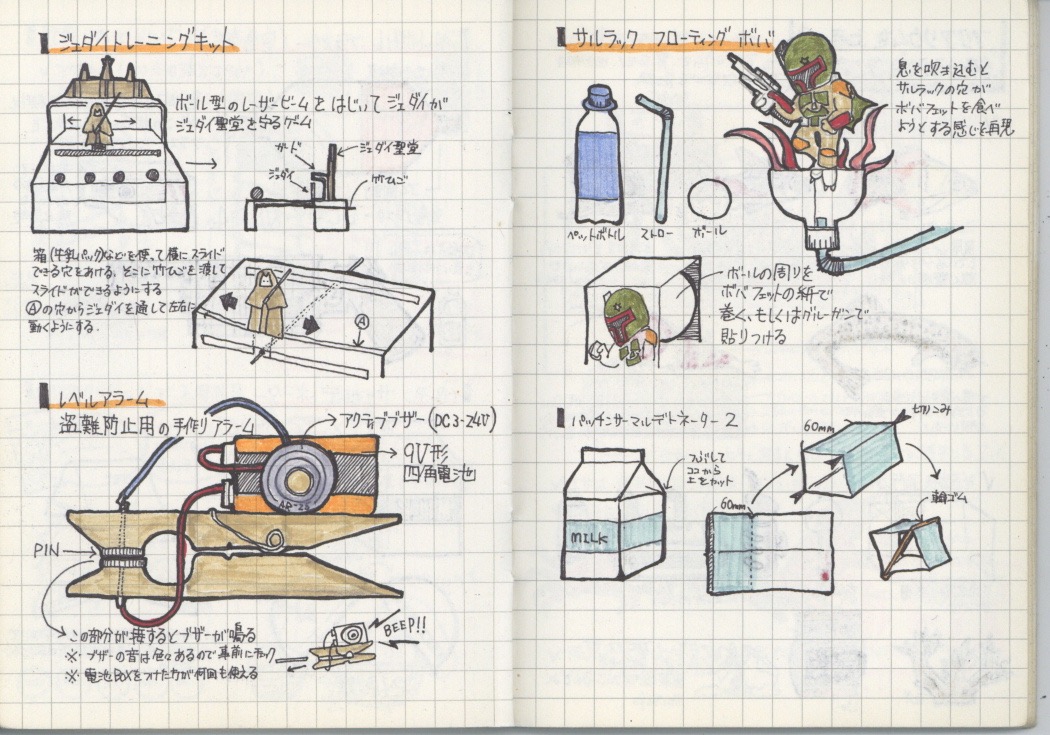 ジェダイトレーニングキット
ボール型のレーザービームをはじいてジェダイが
ジェダイ聖堂を守るゲーム
ガード
ジェダイ聖堂
ジェダイ
竹ひご
箱(牛乳パック)などを使って横にスライド
できる穴をあける。そこに竹ひごを渡して
スライドができるようにする
Ⓐの穴からジェダイを通して左右に
動くようにする.
Ⓐ
レベルアラーム
盗難防止用の手作りアラーム
アクティブブザー(DC3-24V)
9V形
四角電池
PIN
この部分が接するとブザーが鳴る
BEEP!!
※ ブザーの音は色々あるので事前にチェック
※ 電池BOXをつけた方が何回も使える
サルラック フローティング ボバ
息を吹き込むと
サルラックの穴が
ボバフェットを食べ
ようとする感じを再現
ペットボトル
ストロー
ボール
ボールの周りを
ボバフェットの紙で
巻く、もしくはグルーガンで
貼りつける
パッチンサーマルデトネーター2
つぶして
ココから
上をカット
MILK
60mm
60mm
切りこみ
輪ゴム